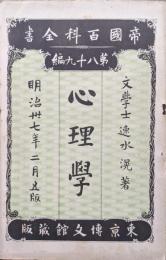 帝國百科全書
第八十九編
文學士 速水滉著
心理學
明治卅七年二月出版
東京博文館蔵版